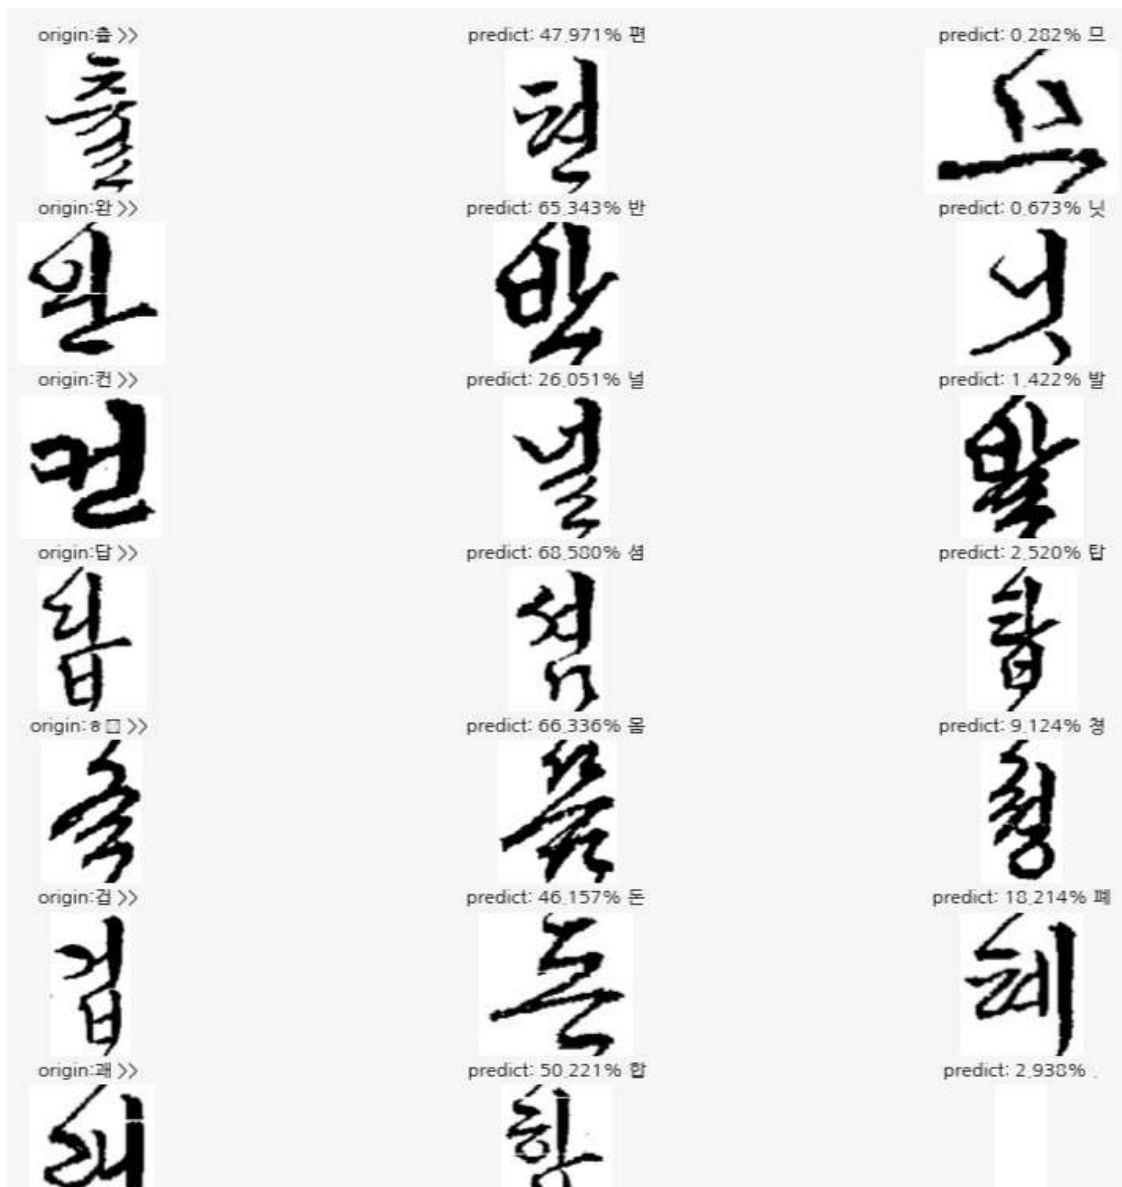 origin:츌 >> predict: 47.971% 편 predict: 0.282% 므
출 편 므
origin:완 >> predict: 65.343% 반 predict: 0.673% 닛
완 반 닛
origin:컨 >> predict: 26.051% 널 predict: 1.422% 발
컨 널 발
origin:답 >> predict: 68.580% 셤 predict: 2.520% 탑
답 셤 탑
origin:ㅎ □ >> predict: 66.336% 몸 predict: 9.124% 쳥
몸 쳥
origin:겁 >> predict: 46.157% 돈 predict: 18.214% 폐
겁 돈 폐
origin:괘 >> predict: 50.221% 합 predict: 2.938% .
괘 합